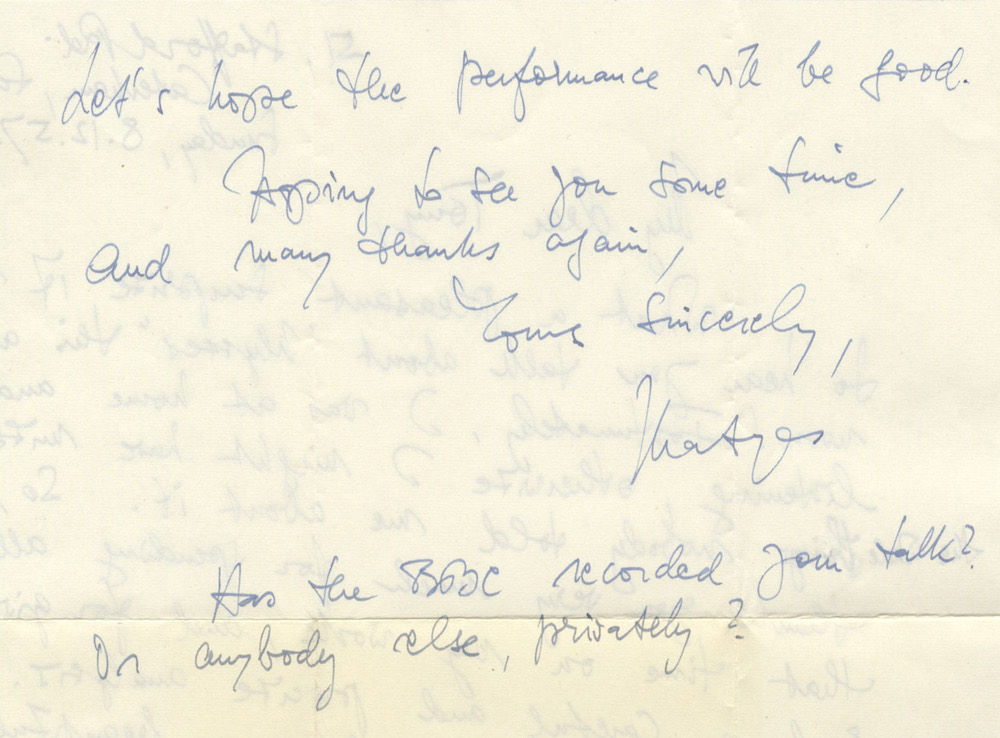 Let's hope the performance will be good.
Hoping to see you some time,
and many thanks again,
Yours sincerely,
Matyas
Has the BBC recorded your talk?
Or anybody else, privately?